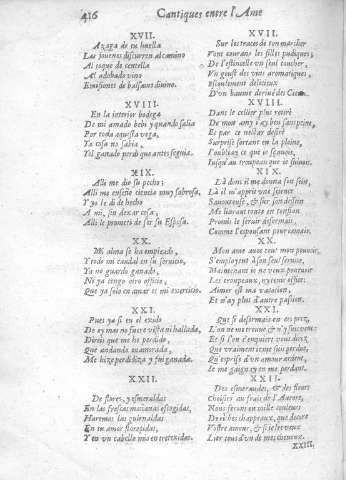 416 Cantiques entre l'Ame
XVII.
A zaga de tu huella
Las jouenes discurren al camino
Al toque de centella
Al adobado vino
Emissiones de balsamo diuino.
XVIII.
En la interior bodega
De mi amado bebi y quando salia
Por toda aquesta vega,
Ya cosa no sabia,
Y el ganado perdi que antes seguia.
XIX.
Alli me dio su pecho;
Alli me enseño ciencia muy sabrosa,
Y yo le di de hecho
A mi, sin dexar cosa,
Alli le prometi de ser su Esposa.
XX.
Mi alma se ha empleado,
Y todo mi caudal en su seruicio,
Ya no guardo ganado,
Ni ya tengo otro officio,
Que ya solo en amar es mi exercicio.
XXI.
Pues ya si en el exido
De oy mas no fuere vista ni hallada,
Direis que me he perdido,
Que andando enamorada,
Me hize perdidiza y fui ganada.
XXII.
De flores, y esmeraldas
En las frescas mañanas escogidas,
Haremos las guirnaldas
En tu amor floridas,
Y en vn cabello mio entretexidas.
XVII.
Sur les traces de ton marcher
Vont courans les filles pudiques;
De l'estincelle vn seul toucher,
Vn goust des vins aromatiques,
Escoulement delicieux
D'vn baume deriué des Cieux.
XVIII.
Dans le cellier plus retiré
De mon amy i'ay beu
Et par ce nectar
Surprise sortant en la plaine,
I'oubliay ce que ie sçauois,
Iusqu'au troupeau que ie suiuois.
XIX.
Là dõt il me donna son sein,
Là il m'apprit vne science
Sauoureuse, & sur son dessein
Me liurant toute
Promis le seruir desormais,
Comme l'espousant pour iamais.
XX.
Mon ame auec tout mon pouuoir,
S'employent à son seul seruice,
Maintenant ie ne veux
Les troupeaux, ny tenir office:
Aimer est ma vacation,
Et n'ay plus d'autre passion.
XXI.
Que si desormais en ces prez,
L'on ne me trouue & n'y suis veuë:
Et si l'on s'enquiert vous direz
Que vrayment ie me suis perduë,
Qu'esprise d'vn amour ardent,
Ie me gaignay en me perdant.
XXII.
Des esmeraudes, & des fleurs
Choisies au frais de l'Aurore,
Nous ferons en mille couleurs
De tres chappeaux, que decore
Vostre amour, & si ie veux
Lier tous d'vn de mes cheueux.
XXIII.